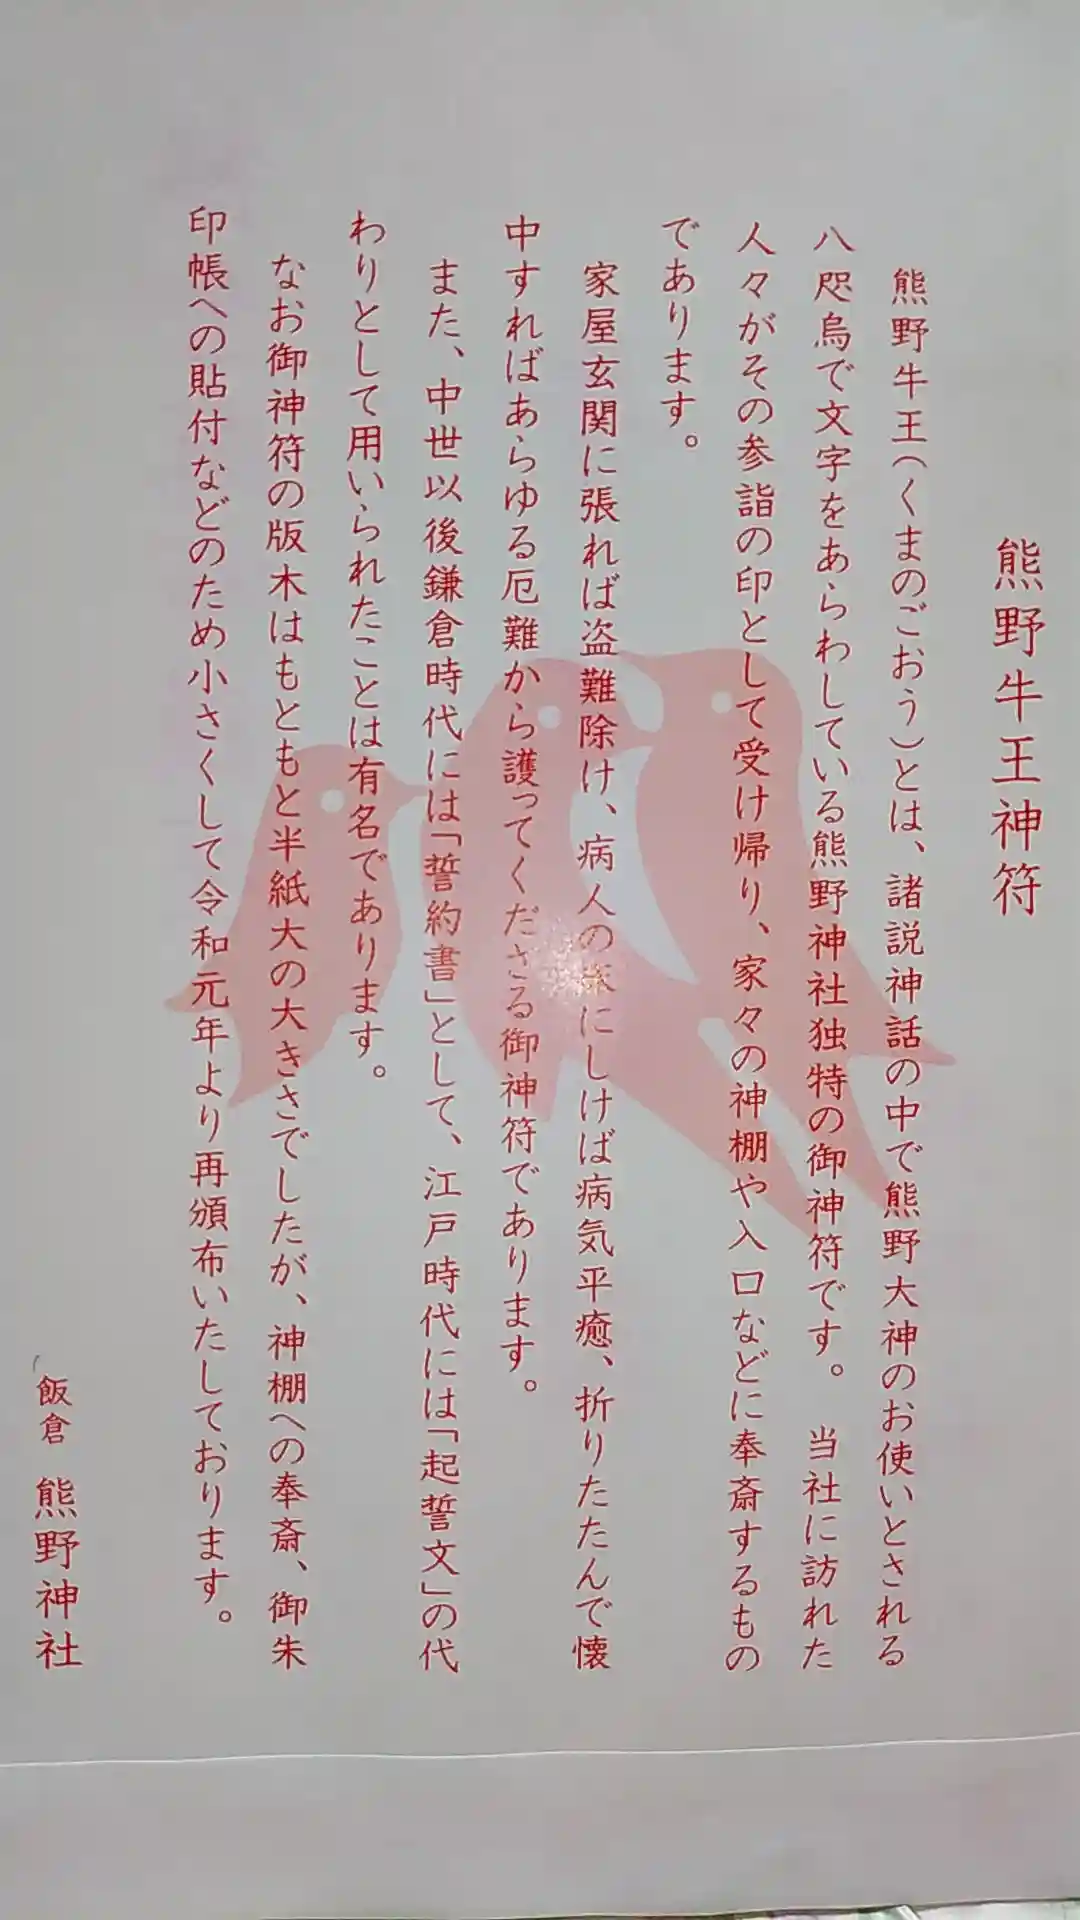 熊野牛王神符
熊野牛王（くまのごおう）とは、諸説神話の中で熊野大神のお使いとされる
八咫烏で文字をあらわしている熊野神社独特の御神符です。当社に訪れた
人々がその参詣の印として受け帰り、家々の神棚や入口などに奉斎するもの
であります。
家屋玄関に張れば盗難除け、病人の床にしけば病気平癒、折りたたんで懐
中すればあらゆる厄難から護ってくださる御神符であります。
また、中世以後鎌倉時代には「誓約書」として、江戸時代には「起誓文」の代
わりとして用いられたことは有名であります。
なお御神符の版木はもともと半紙大の大きさでしたが、神棚への奉斎、御朱
印帳への貼付などのため小さくして令和元年より再頒布いたしております。
飯倉 熊野神社